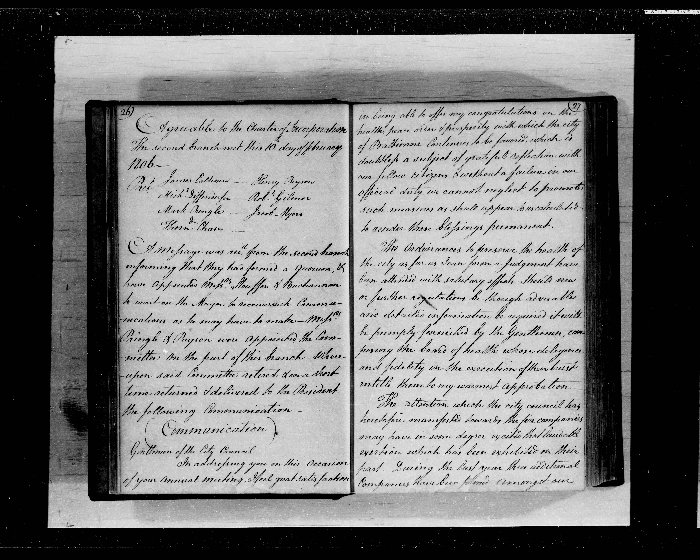 26)
Agreeable to the Charter of Incorporation
The second branch met this 10th day of February
1806—
Pres.t James Edmon Henry Payson
Mich.l Diffenderfer Rob.t Gilmor
Mark Pringle Jacob Myers
Thorn.d Chase
A Message was rec.d from the second branch
informing that they had formed a Quorum, &
have Appointed Mess.rs Stouffer & Buchannan
to wait on the Mayor to receive such Commu-
nications as he may have to make — Mess.rs
Pringle & Payson were appointed the Com-
mittee on the part of this branch. Where-
upon said Committee retired & in a short
time returned & delivered to the President
the following Communication —
(Communication)
Gentlemen of the City Council
In addressing you on this occasion
of your annual meeting, I feel great satisfaction
(27
in being able to offer my congratulations on the
health, peace, order & prosperity with which the city
of Baltimore continues to be favored, which is
doubtless a subject of grateful reflection with
our fellow citizens & without a failure in our
official duty we cannot neglect to promote
such measures as shall appear best calculated
to render these blessings permanent.
The Ordinances to preserve the health of
the city as far as I can form a judgment have
been attended with salutary effects. Should new
or further regulations be thought advisable
and detailed information be required it will
be promptly furnished by the Gentlemen, com-
posing the board of health whose diligence
and fidelity in the execution of their trust
entitle them to my warmest approbation
The attention which the city council has
heretofore manifested towards the fire companies
may have in some degree excited that laudable
exertion which has been exhibited on their
part. During the last year three additional
Companies have been formed amongst our